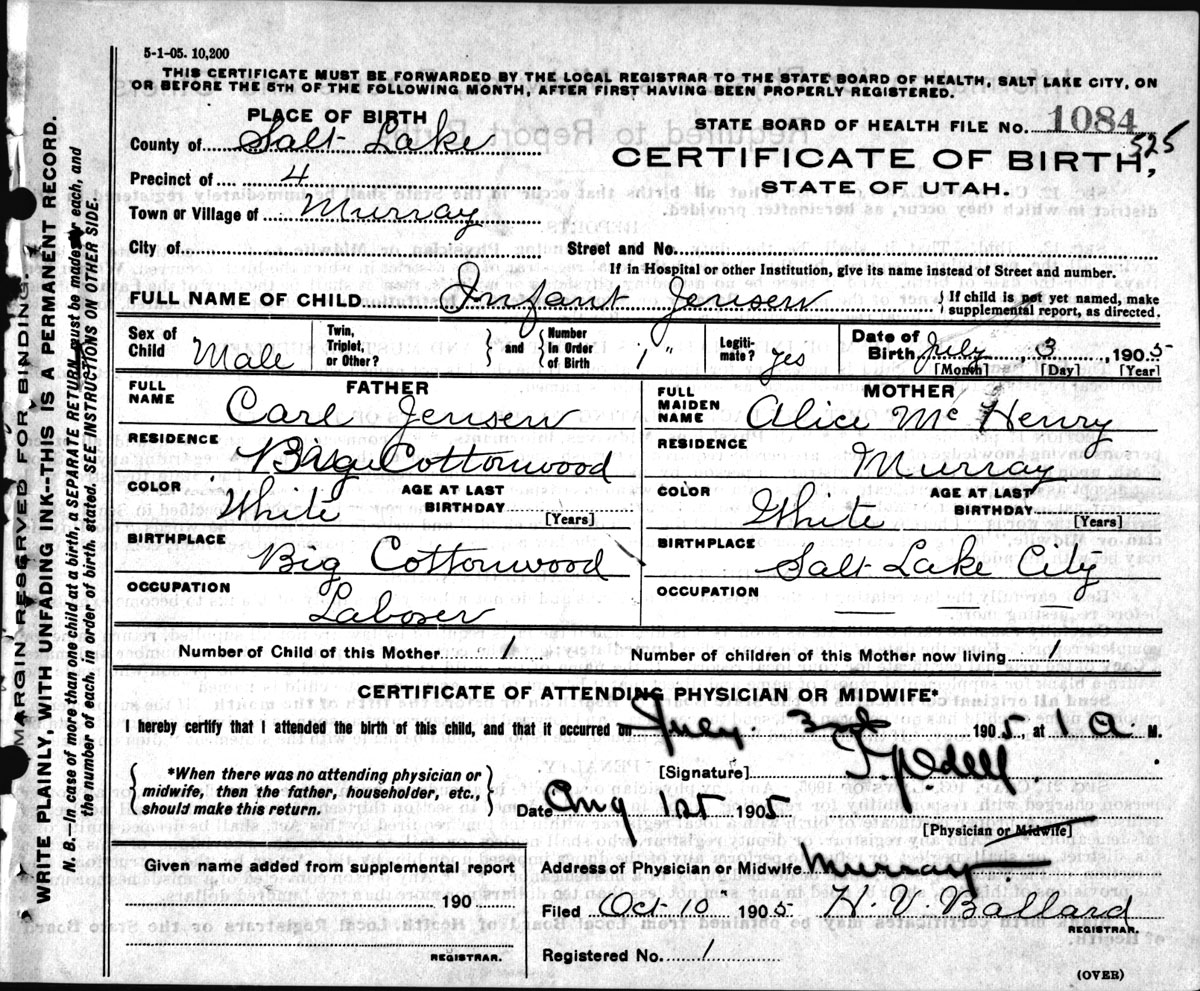 5-1-05. 10,200
THIS CERTIFICATE MUST BE FORWARDED BY THE LOCAL REGISTRAR TO THE STATE BOARD OF HEALTH, SALT LAKE CITY, ON
OR BEFORE THE 5TH OF THE FOLLOWING MONTH, AFTER FIRST HAVING BEEN PROPERLY REGISTERED.
PLACE OF BIRTH
STATE BOARD OF HEALTH FILE No. 1084
525
County of Salt Lake
CERTIFICATE OF BIRTH,
Precinct of 4
STATE OF UTAH.
Town or Village of Murray
City of Street and No.
If in Hospital or other Institution, give its name instead of Street and number.
FULL NAME OF CHILD Infant Jensen { If child is not yet named, make supplemental report, as directed.
Sex of Child Male Twin, Triplet, or Other? } and { Number In Order of Birth 1 Legiti-mate? yes Date of Birth July 3 1905
[Month] [Day] [Year]
FATHER
FULL NAME Carl Jensen
RESIDENCE Big Cottonwood
COLOR White AGE AT LAST BIRTHDAY [Years]
BIRTHPLACE Big Cottonwood
OCCUPATION Laborer
MOTHER
FULL MAIDEN NAME Alice McHenry
RESIDENCE Murray
COLOR White AGE AT LAST BIRTHDAY [Years]
BIRTHPLACE Salt Lake City
OCCUPATION
Number of Child of this Mother 1 Number of children of this Mother now living 1
CERTIFICATE OF ATTENDING PHYSICIAN OR MIDWIFE*
I hereby certify that I attended the birth of this child, and that it occurred on July 3 1905, at 1 A M.
{ *When there was no attending physician or
midwife, then the father, householder, etc.,
should make this return. }
[Signature]
Date Aug 1st 1905
[Physician or Midwife]
Given name added from supplemental report
190
REGISTRAR.
Address of Physician or Midwife Murray
Filed Oct 10 1905 H. V. Ballard
REGISTRAR.
Registered No. 1
(OVER)
MARGIN RESERVED FOR BINDING.
WRITE PLAINLY, WITH UNFADING INK--THIS IS A PERMANENT RECORD.
N. B.—In case of more than one child at a birth, a SEPARATE RETURN must be made for each, and
the number of each, in order of birth, stated. SEE INSTRUCTIONS ON OTHER SIDE.